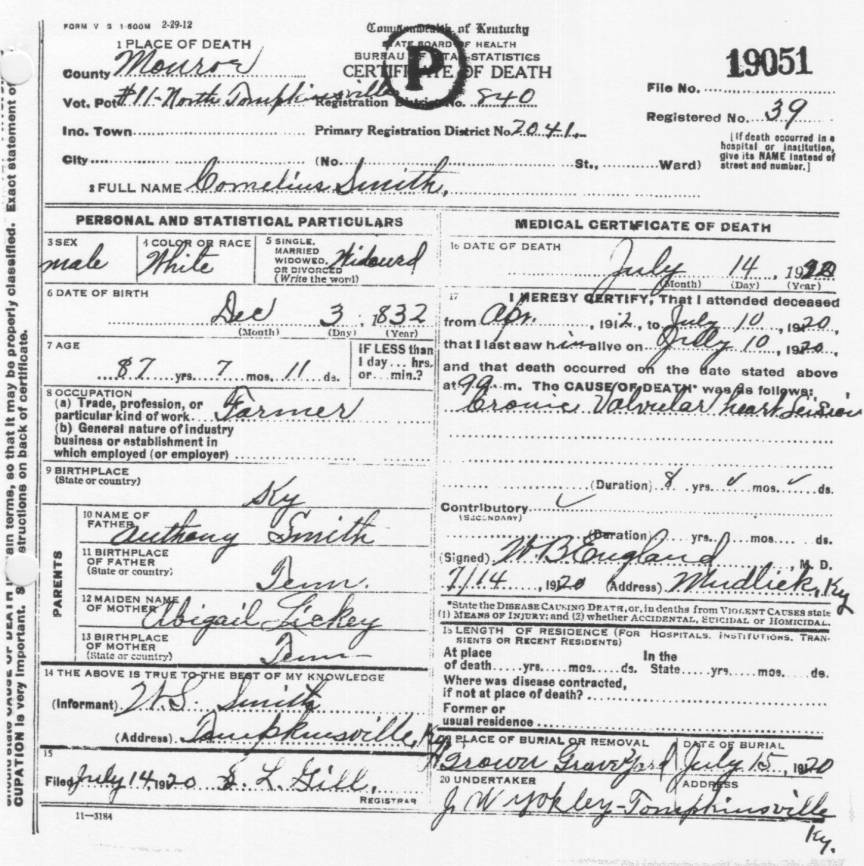 FORM V S 1-500M 2-29-12
Commonwealth of Kentucky
STATE BOARD OF HEALTH
BUREAU OF VITAL STATISTICS
CERTIFICATE OF DEATH
P
1 PLACE OF DEATH
County Monroe
Vot. Pct #11-North Tompkinsville Registration District No. 840
Inc. Town Primary Registration District No. 7041.
City (No. St., Ward)
File No. 19051
Registered No. 39
[If death occurred in a
hospital or institution,
give its NAME instead of
street and number.]
2 FULL NAME Cornelius Smith,
PERSONAL AND STATISTICAL PARTICULARS
3 SEX
male
4 COLOR OR RACE
White
5 SINGLE,
MARRIED
WIDOWED,
OR DIVORCED
(Write the word)
Widowed
6 DATE OF BIRTH
Dec 3, 1832
(Month) (Day) (Year)
7 AGE
87 yrs. 7 mos. 11 ds.
IF LESS than
1 day... hrs.
or... min.?
8 OCCUPATION
(a) Trade, profession, or
particular kind of work Farmer
(b) General nature of industry
business or establishment in
which employed (or employer)
9 BIRTHPLACE
(State or country)
Ky
PARENTS
10 NAME OF
FATHER
Anthony Smith
11 BIRTHPLACE
OF FATHER
(State or country)
Tenn.
12 MAIDEN NAME
OF MOTHER
Abigail Lickey
13 BIRTHPLACE
OF MOTHER
(State or country)
Tenn
14 THE ABOVE IS TRUE TO THE BEST OF MY KNOWLEDGE
(Informant) W.S. Smith
(Address) Tompkinsville, Ky
15
Filed July 14, 1920 S. L. Gill.
REGISTRAR
11-3184
MEDICAL CERTIFICATE OF DEATH
16 DATE OF DEATH
July 14, 1920
(Month) (Day) (Year)
17 I HEREBY CERTIFY, That I attended deceased
from Apr. , 1912, to July 10, 1920,
that I last saw him alive on July 10, 1920,
and that death occurred on the date stated above
at m. The CAUSE OF DEATH* was as follows:
Cronic Valvular heart
(Duration) 8 yrs. mos. ds.
Contributory
(SECONDARY)
(Duration) yrs. mos. ds.
(Signed) W B England, M. D.
7/14, 1920 (Address) Mudlick, Ky
*State the DISEASE CAUSING DEATH, or, in deaths from VIOLENT CAUSES state
(1) MEANS OF INJURY; and (2) whether ACCIDENTAL, SUICIDAL or HOMICIDAL.
18 LENGTH OF RESIDENCE (FOR HOSPITALS, INSTITUTIONS, TRAN-
SIENTS OR RECENT RESIDENTS)
At place In the
of death yrs. mos. ds. State yrs. mos. ds.
Where was disease contracted,
if not at place of death?
Former or
usual residence
19 PLACE OF BURIAL OR REMOVAL
Brown Grave Yard
DATE OF BURIAL
July 15, 1920
20 UNDERTAKER
J. W Yokley-Tompkinsville
ADDRESS
Ky.
ain terms, so that it may be properly classified. Exact statement of
structions on back of certificate.
CUPATION is very important.